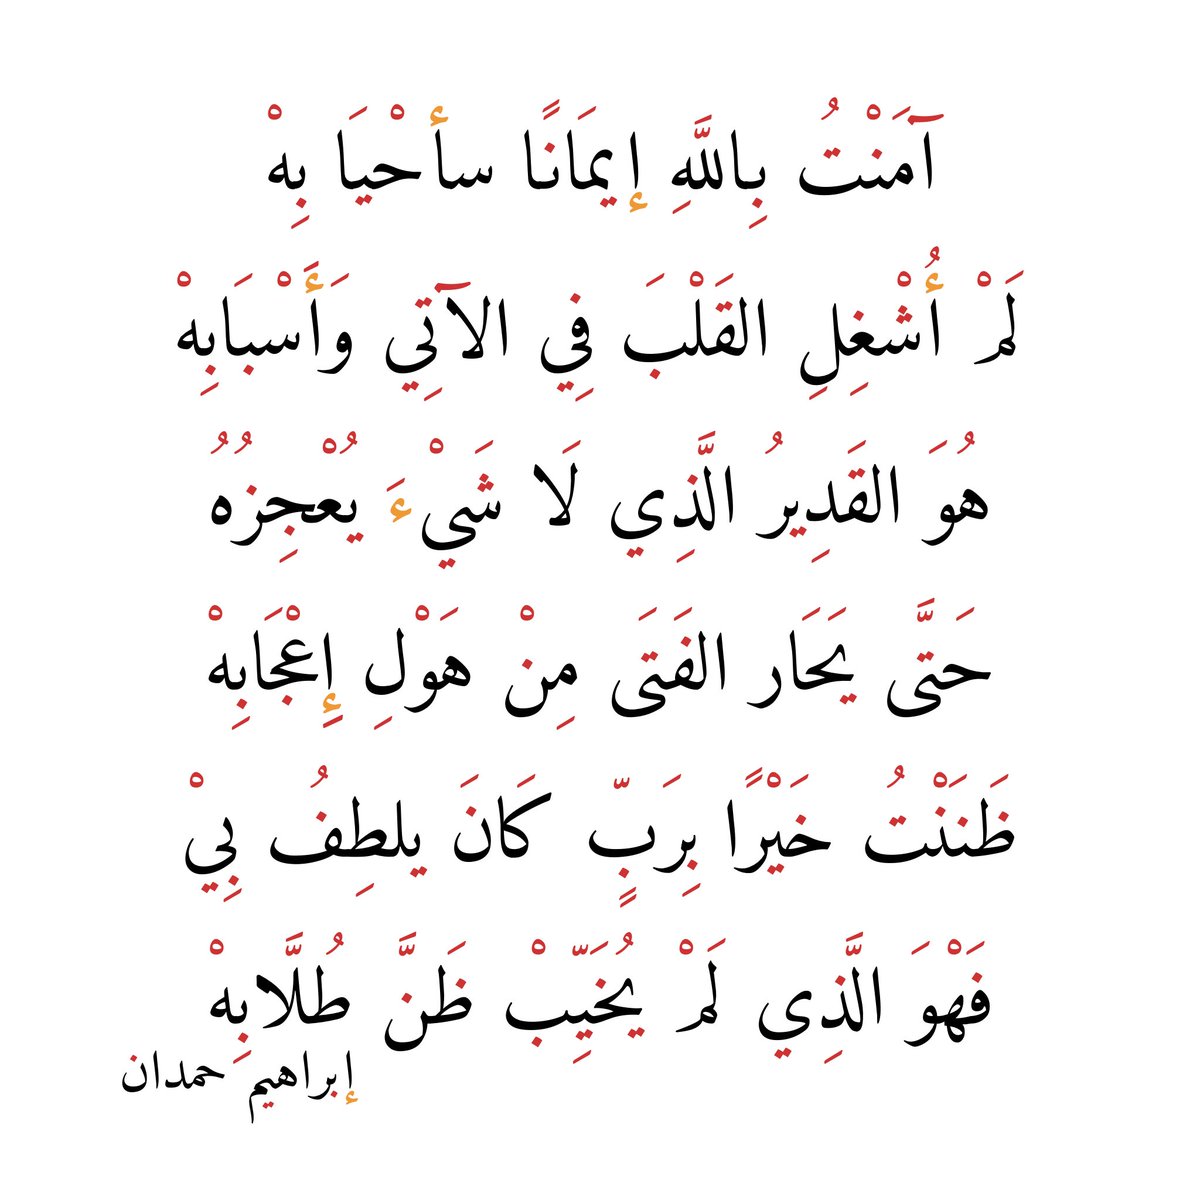 آمَنْتُ بِاللَّهِ إِيمَانًا سأحْيَا بِهْ
لَمْ أُشْغِلِ القَلْبَ فِي الآتِي وَأَسْبَابِهْ
هُوَ القَدِيرُ الَّذِي لَا شَيْءَ يُعْجِزُهُ
حَتَّى يَحَار الفَتَى مِنْ هَوْلِ إِعْجَابِهْ
ظَنَنْتُ خَيْرًا بِرَبٍّ كَانَ يلطِفُ بِيْ
فَهْوَ الَّذِي لَمْ يُخَيِّبْ ظَنَّ طُلَّابِهْ
إبراهيم حمدان